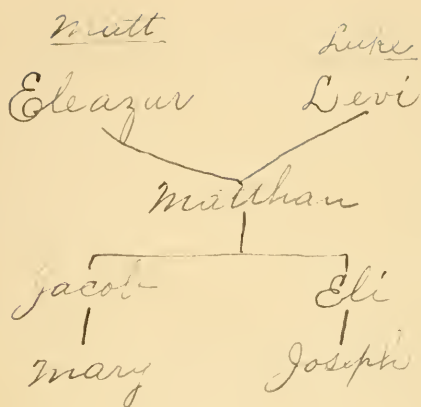 Matt Luke
Eleazur Levi
Matthan
Jacob Eli
Mary Joseph